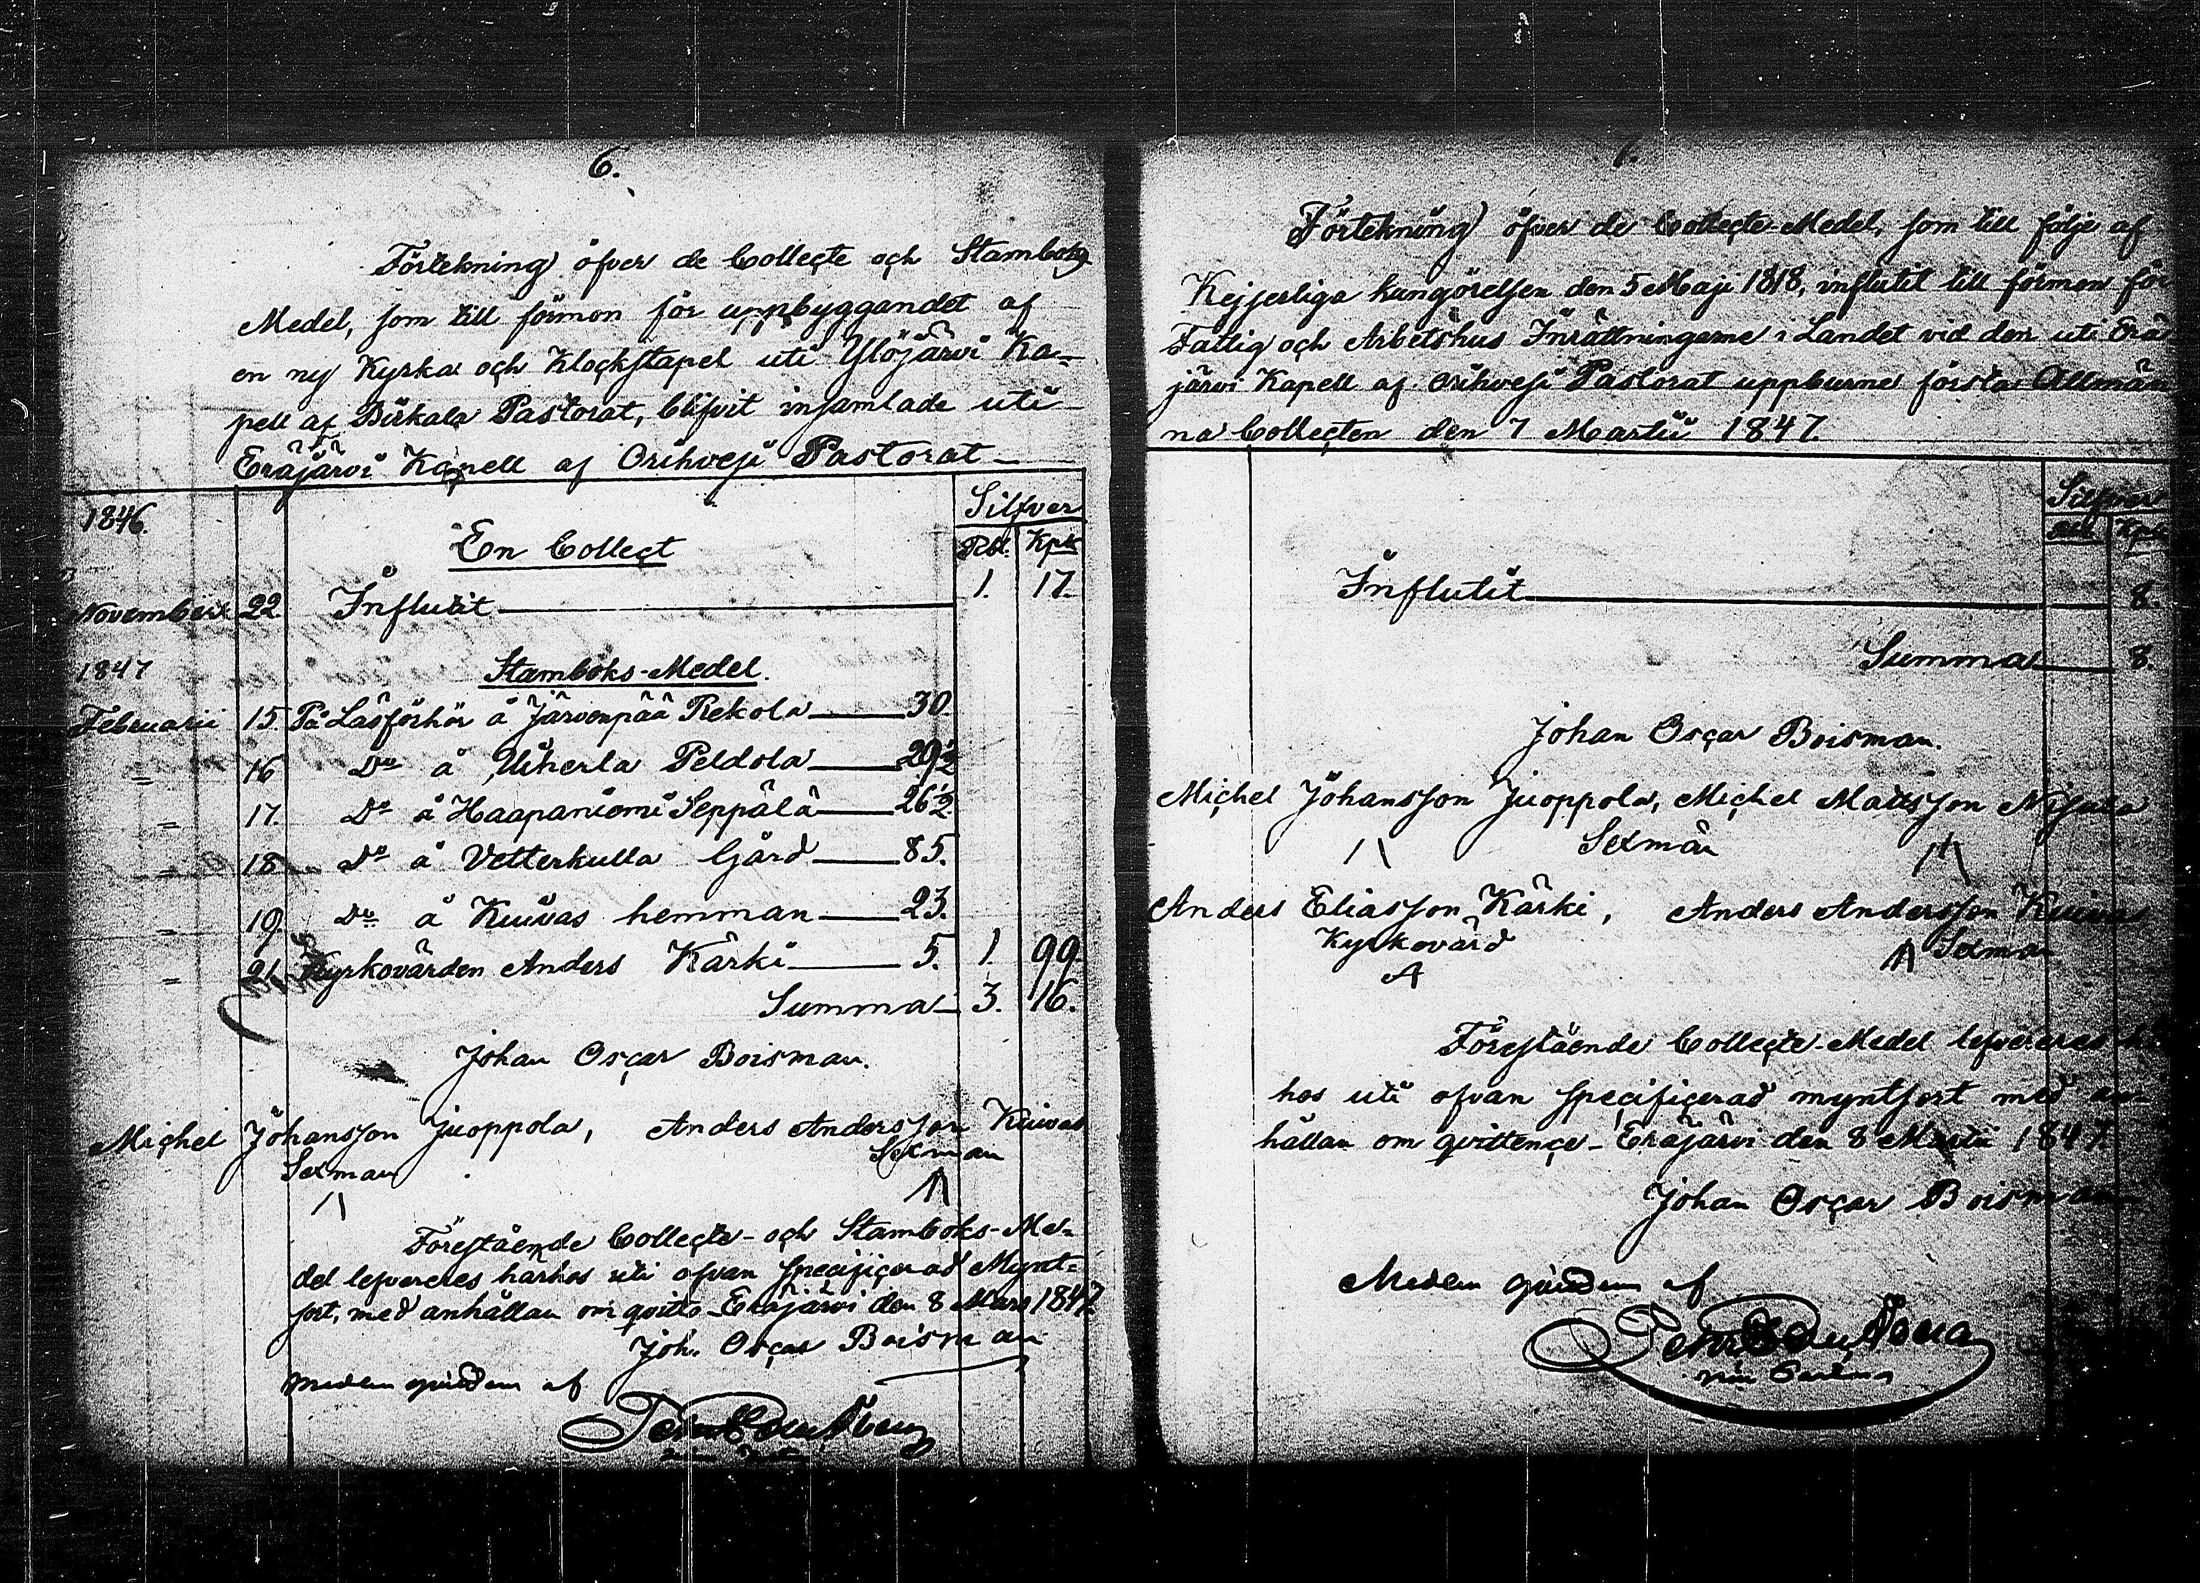 6.
Förtekning öfver de Collecte och Stamboks
Medel, som till förmon för uppbyggandet af
en ny Kyrka och Klockstapel uti Ylöjärvi Ka-
pell af Birkala Pastorat, blifvit insamlade uti
Eräjärvi Kapell af Orihvesi Pastorat
Silfver
1846.
En Collect
Rbl. Kpk
Novembris 22. Influtit 1. 17.
1847
Stamboks-Medel.
Februarii 15. På Läsförhör å Järvenpää Rekola 30.
" 16 Do å Uiherla Peldola 29 1/2
" 17. Do å Haapaniemi Seppälä 26 1/2.
" 18 Do å Vetterkulla Gård 85.
" 19. Do å Kuivas hemman 23.
" 21. Kyrkovärden Anders Kärki 5. 1. 99.
Summa 3. 16.
Johan Oscar Boisman.
Michel Johansson Juoppola, Anders Andersson Kuivas
Sexman Sexman
Förestående Collecte- och Stamboks-Me-
del lefvereres härhos uti ofvan specificerad Mynt-
sort, med anhållan om qvitto. Eräjärvi den 8 Mars 1847.
Joh. Oscar Boisman
Medlen qvitteras af
Förtekning öfver de Collecte-Medel, som till följe af
Kejserliga kungörelsen den 5 Maji 1818, influtit till förmon för
Fattig och Arbetshus Inrättningarne i Landet vid den uti Erä
järvi Kapell af Orihvesi Pastorat uppburne första Allmän
na Collecten den 7 Martii 1847.
Silfver
Rbl. Kpk
Influtit 8.
Summa 8.
Johan Oscar Boisman.
Michel Johansson Juoppola, Michel Mattsson
Sexmän
Anders Eliasson Kärki, Anders Andersson Kuivas
Kyrkovärd Sexman
Förestående Collecte-Medel lefvereres
hos uti ofvan specificerad myntsort med an-
hållan om qvittence. Eräjärvi den 8 Martii 1847.
Johan Oscar Boisman
Medlen qvitteras af